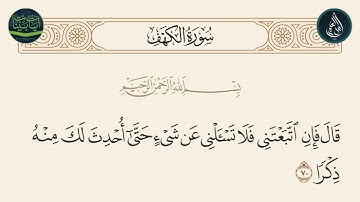 سُورَةُ الكَهْفِ
بِسْمِ اللَّهِ الرَّحْمَٰنِ الرَّحِيمِ
قَالَ فَإِنِ ٱتَّبَعْتَنِى فَلَا تَسْـَٔلْنِى عَن شَىْءٍ حَتَّىٰٓ أُحْدِثَ لَكَ مِنْهُ
ذِكْرًا ٧٠